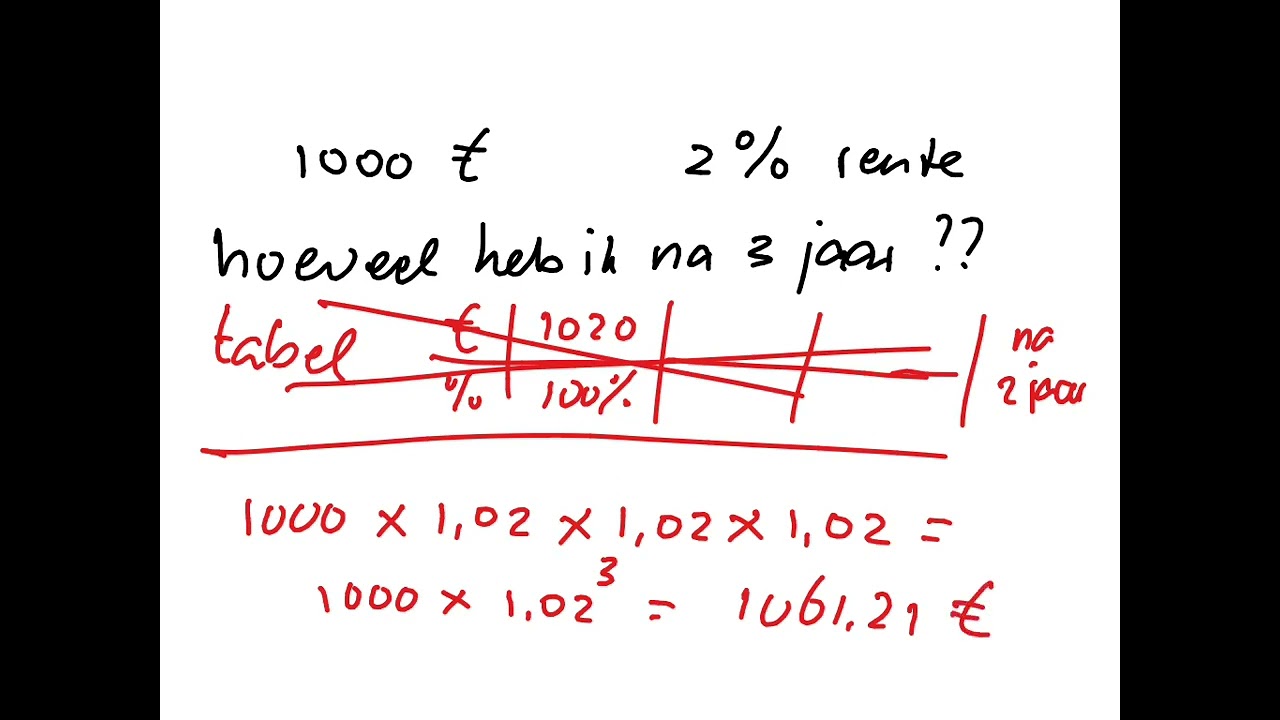 1000 € 2% rente
hoeveel heb ik na 3 jaar ??
tabel € 1020 na
% 100% 2 jaar
1000 × 1,02 × 1,02 × 1,02 =
1000 × 1,02³ = 1061.21 €